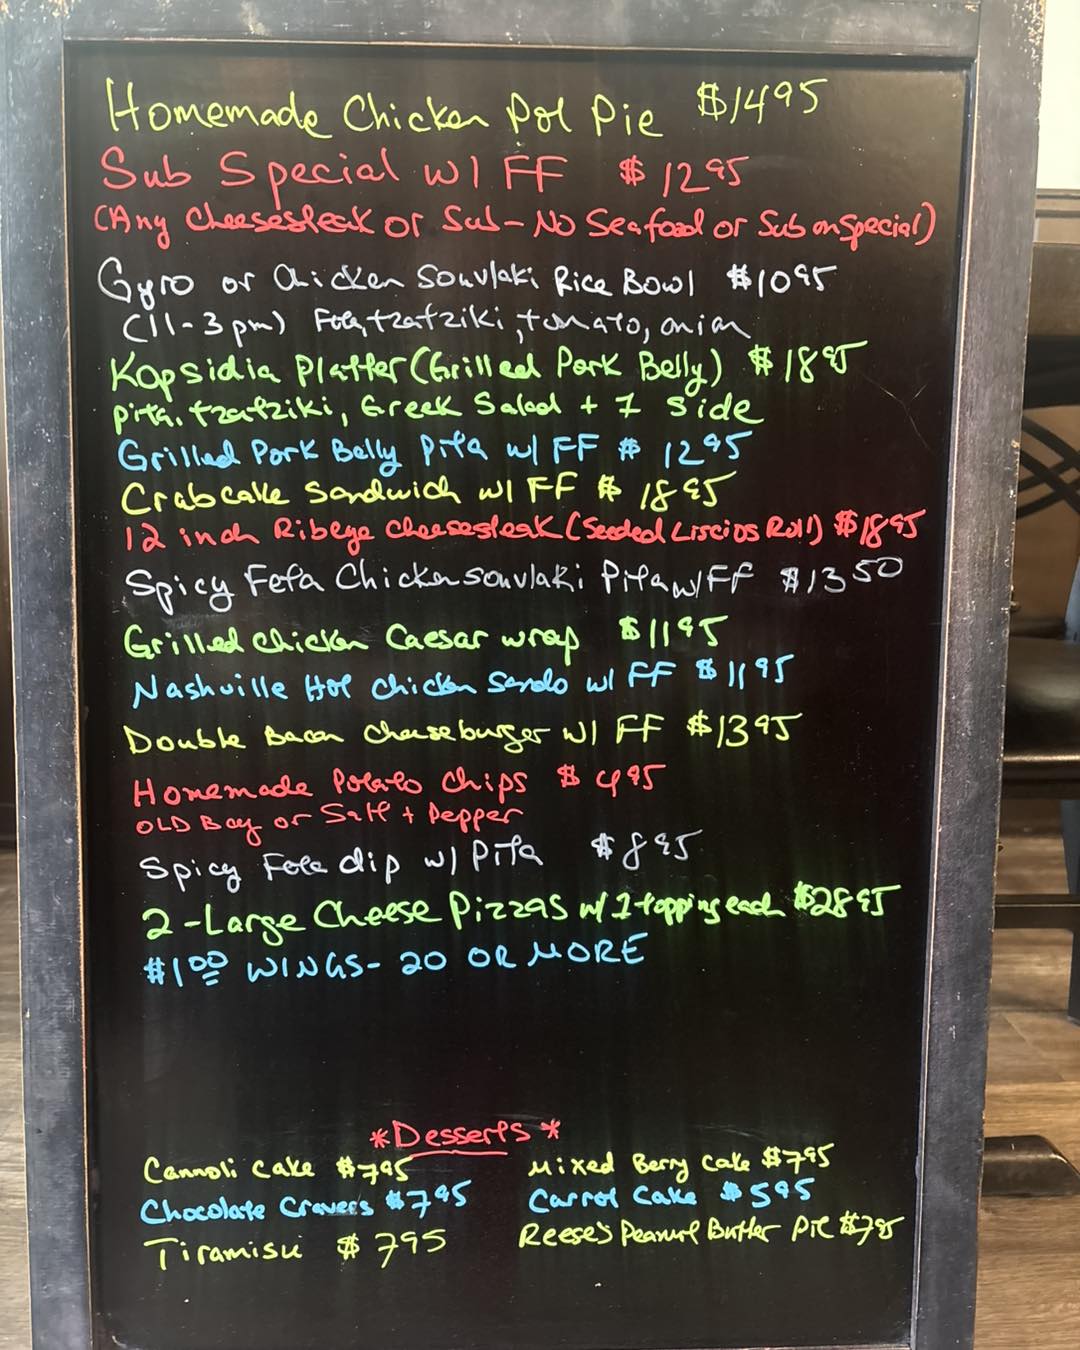 Homemade Chicken Pot Pie $1495
Sub Special w/ FF $1295
(Any Cheesesteak or Sub-No Seafood or Sub on Special)
Gyro or Chicken Souvlaki Rice Bowl $1095
(11-3pm) Feta, tzatziki, tomato, onion
Kopsidia Platter (Grilled Pork Belly) $1895
pita, tzatziki, Greek Salad + 1 side
Grilled Pork Belly Pita w/ FF $1295
Crabcake Sandwich w/ FF $1895
12 inch Ribeye Cheesesteak (Seeded Liscios Roll) $1895
Spicy Feta Chicken souvlaki Pita w/ FF $1350
Grilled chicken Caesar wrap $1195
Nashville Hot Chicken Sando w/ FF $1195
Double Bacon Cheeseburger w/ FF $1395
Homemade Potato Chips $495
OLD Bay or Salt + Pepper
Spicy Feta dip w/ Pita $895
2-Large Cheese Pizzas w/ 1 topping each $2895
$1.00 WINGS- 20 OR MORE
*Desserts*
Cannoli Cake $795 Mixed Berry Cake $795
Chocolate Cravers $795 Carrot Cake $595
Tiramisu $795 Reese's Peanut Butter Pie $795